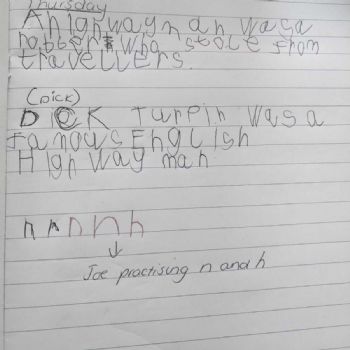 Thursday
A highwayman was a
robber who stole from
travellers.
(Dick)
DICK Turpin was a
famous English
Highway man
n n n n h
↓
Joe practising n and h